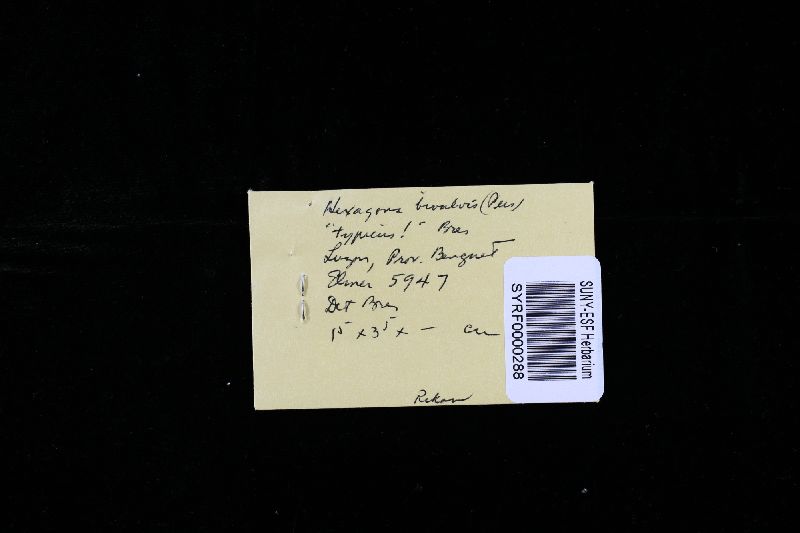 Hexagona bivalvis (Pers)
"typicus!" Bres
Luzon, Prov. Benguet
Elmer 5947
Det Bres
15 x 35 x — cm
SUNY-ESF Herbarium
SYRF0000288